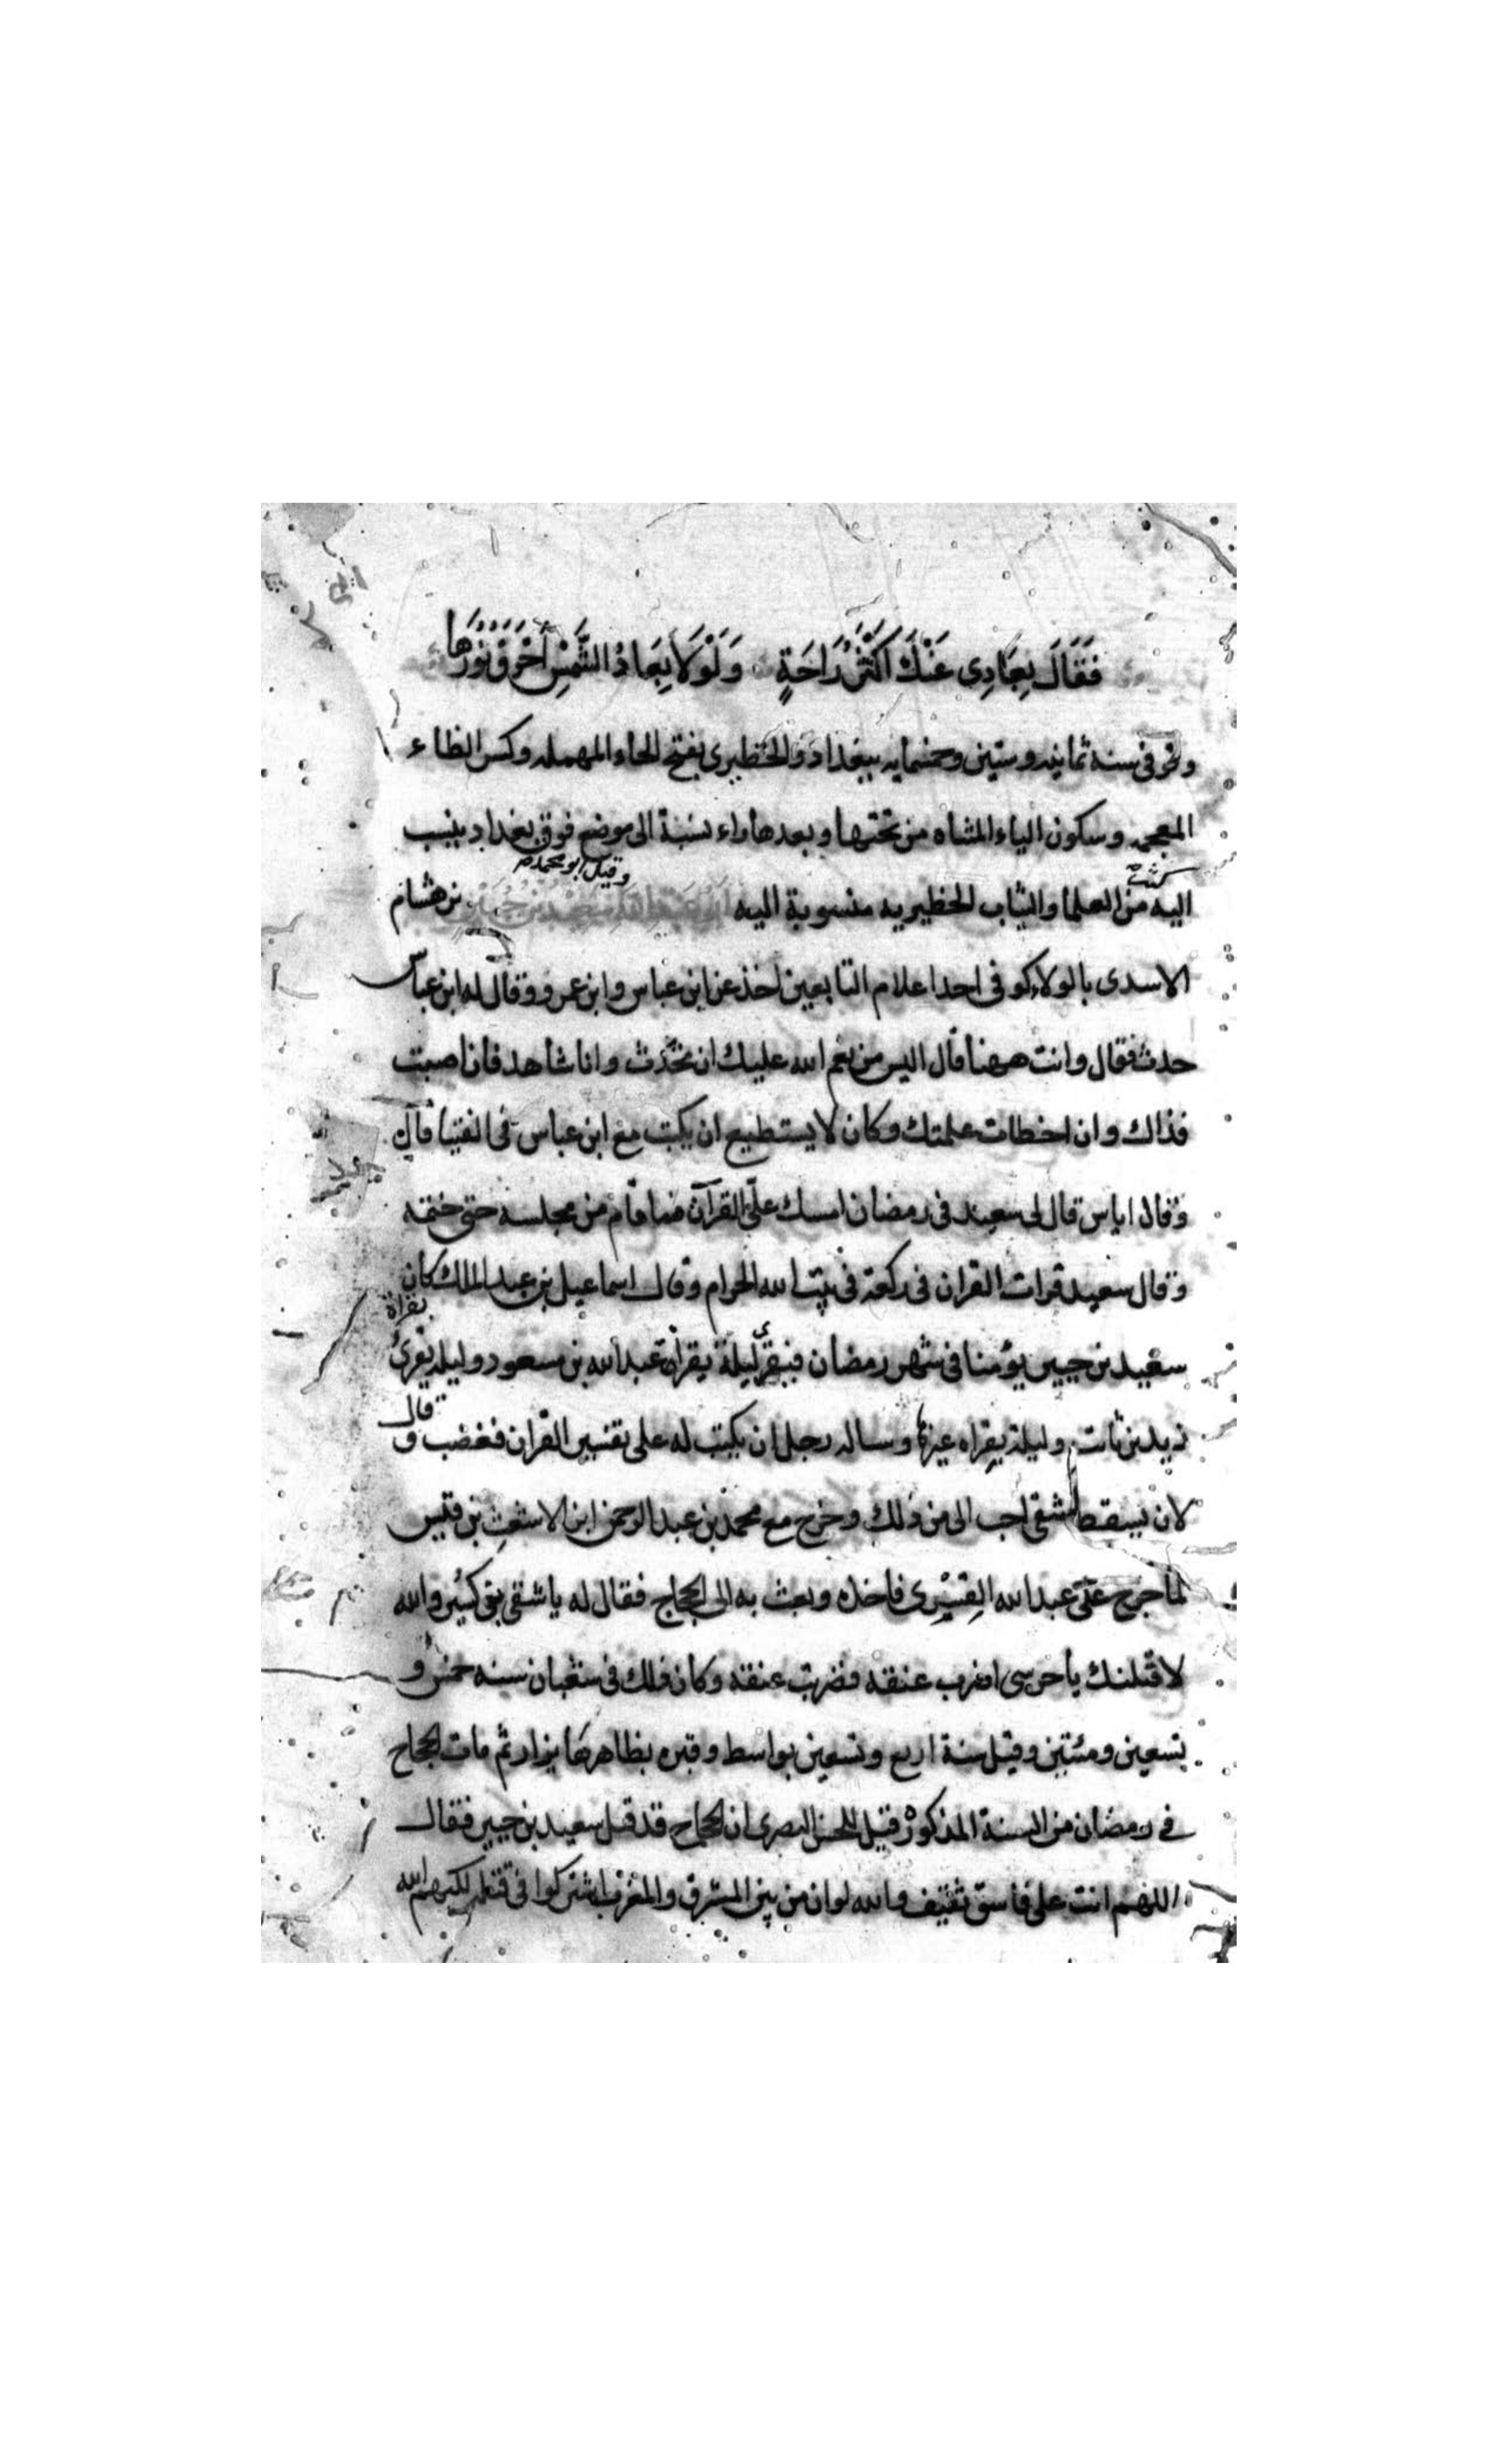 فَقَالَ بِعَادِى عَنْكَ اَكْثَرُ رَاحَةٍ وَلَوْلَا بِعَادُ الشَّمْسِ أَحْرَقَ نُوْرُهَا
وتوفى سنة ثمانيه وستين وخمسمايه ببغداد والحظيرى بفتح الحاء المهمله وكسر الظاء
المعجمه وسكون الياء المثناه من تحتها وبعدها راء نسبة الى موضع فوق بغداد ينسب
كثير
وقيل ابو محمد
اليه من العلما والثياب الحظيريه منسوبة اليه ابو عبد الله سعيد بن جبير بن هشام
الاسدى بالولاء كوفى احد اعلام التابعين اخذ عن ابن عباس وابن عمر وقال له ابن عباس
حدث فقال وانت ههنا قال اليس من نعم الله عليك ان تحدث وانا شاهد فان اصبت
فذاك وان اخطات علمتك وكان لا يستطيع ان يكتب مع ابن عباس فى الفتيا قال
وقال اياس قال لى سعيد فى رمضان امسك علىّ القرآن فما قام من مجلسه حتى ختمه
وقال سعيد قرات القران فى ركعة فى بيت الله الحرام وقال اسماعيل بن عبد الملك كان
سعيد بن جبير يؤمنا فى شهر رمضان فيقرى ليلة بقراة عبد الله بن مسعود وليله يقرئ بقراة
زيد بن ثابت وليلة بقراه غيرها وساله رجل ان يكتب له على تفسير القران فغضب وقال
لان يسقط شقى احب الى من ذلك وخرج مع محمد بن عبد الرحمن ابن الاشعث بن قيس
لما خرج على عبد الله القسرى فاخذه وبعث به الى الحجاج فقال له يا شقى بن كسير والله
لاقتلنك يا حرسى اضرب عنقه فضربت عنقه وكان ذلك فى شعبان سنه خمس و
تسعين ومئتين وقيل سنة اربع وتسعين بواسط وقبره بظاهرها يزار ثم مات الحجاج
فى رمضان من السنة المذكوره قيل للحسن البصرى ان الحجاج قد قتل سعيد بن جبير فقال
اللهم انت على فاسق ثقيف والله لو ان من بين المشرق والمغرب اشتركوا فى قتله لكبهم الله